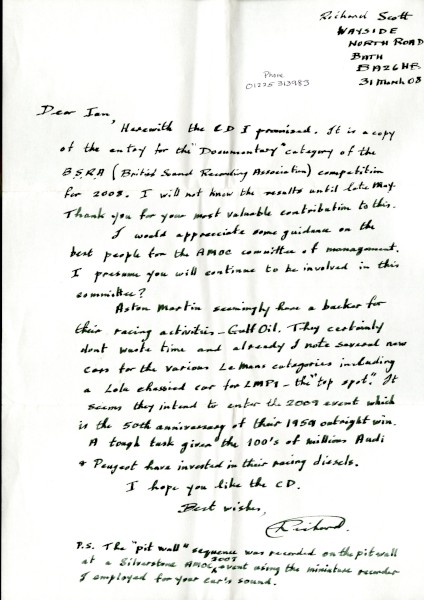 Richard Scott
WAYSIDE
NORTH ROAD
BATH
BA2 6HB
31 March 08
Phone
01225 313983
Dear Ian,
Herewith the CD I promised. It is a copy
of the entry for the "Documentary" category of the
B.S.R.A (British Sound Recording Association) competition
for 2008. I will not know the results until late May.
Thank you for your most valuable contribution to this.
I would appreciate some guidance on the
best people for the AMOC committee of management.
I presume you will continue to be involved in this
committee?
Aston Martin seemingly have a backer for
their racing activities - Gulf Oil. They certainly
dont waste time and already I note several new
cars for the various Le Mans categories including
a Lola chassied car for LMP1 - the "top spot". It
seems they intend to enter the 2009 event which
is the 50th anniversary of their 1959 outright win.
A tough task given the 100's of millions Audi
& Peugeot have invested in their racing diesels.
I hope you like the CD.
Best wishes,
Richard.
P.S. The "pit wall" sequence was recorded on the pit wall
at a Silverstone AMOC 2007 event using the miniature recorder
I employed for your car's sound.